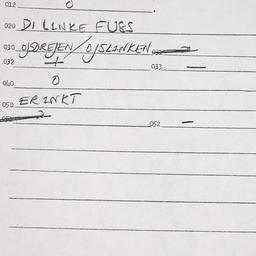 012 0
020 DI LINKE FUES
030 OJSDREJEN/OJSLINKEN
032 + 033 —
040 0
050 ERINKT
052 —